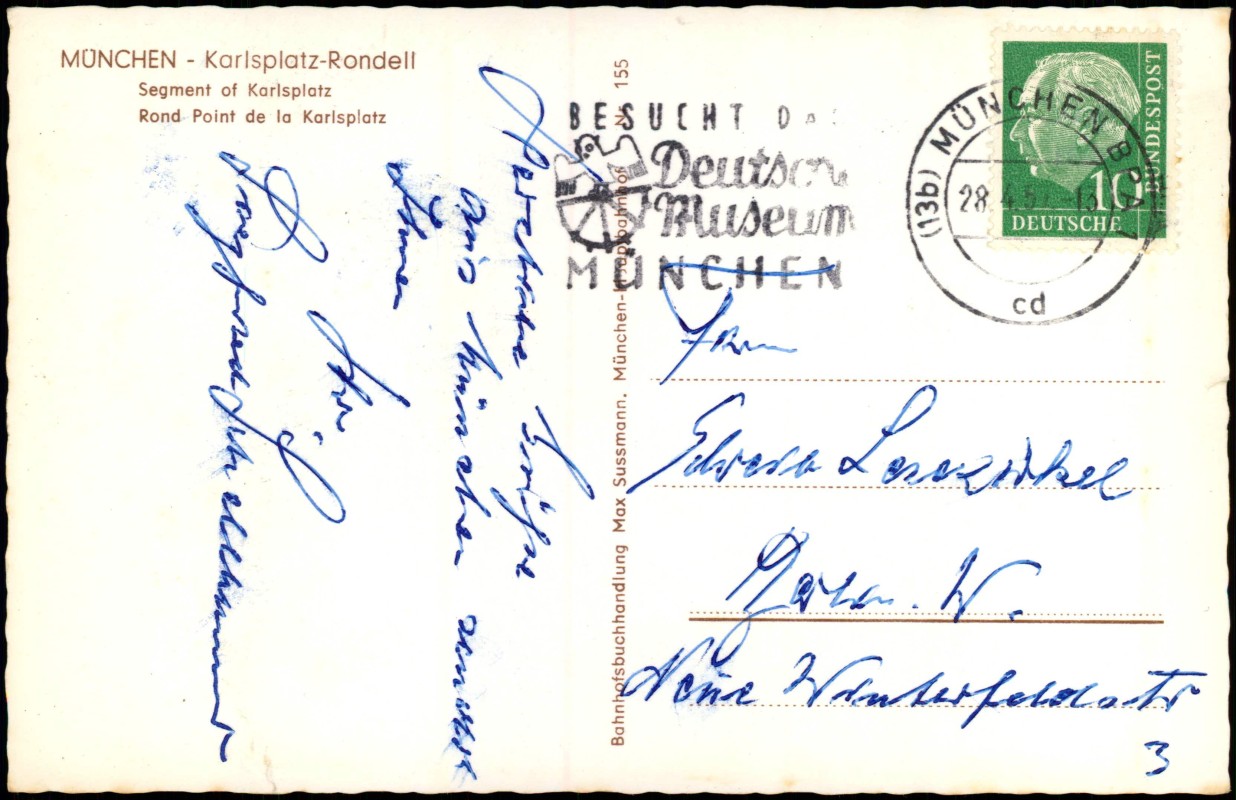 MÜNCHEN - Karlsplatz-Rondell
Segment of Karlsplatz
Rond Point de la Karlsplatz
Grüße
aus München
Ihnen
Ihr
Bahnhofsbuchhandlung Max Sussmann, München-Hauptbahnhof Nr. 155
BESUCHT DAS
Deutsche
Museum
MÜNCHEN
(13b) MÜNCHEN BPA
28.4.5
cd
10
DEUTSCHE
BUNDESPOST
Lesezirkel
Berlin. W.
Neue Winterfeldstr
3